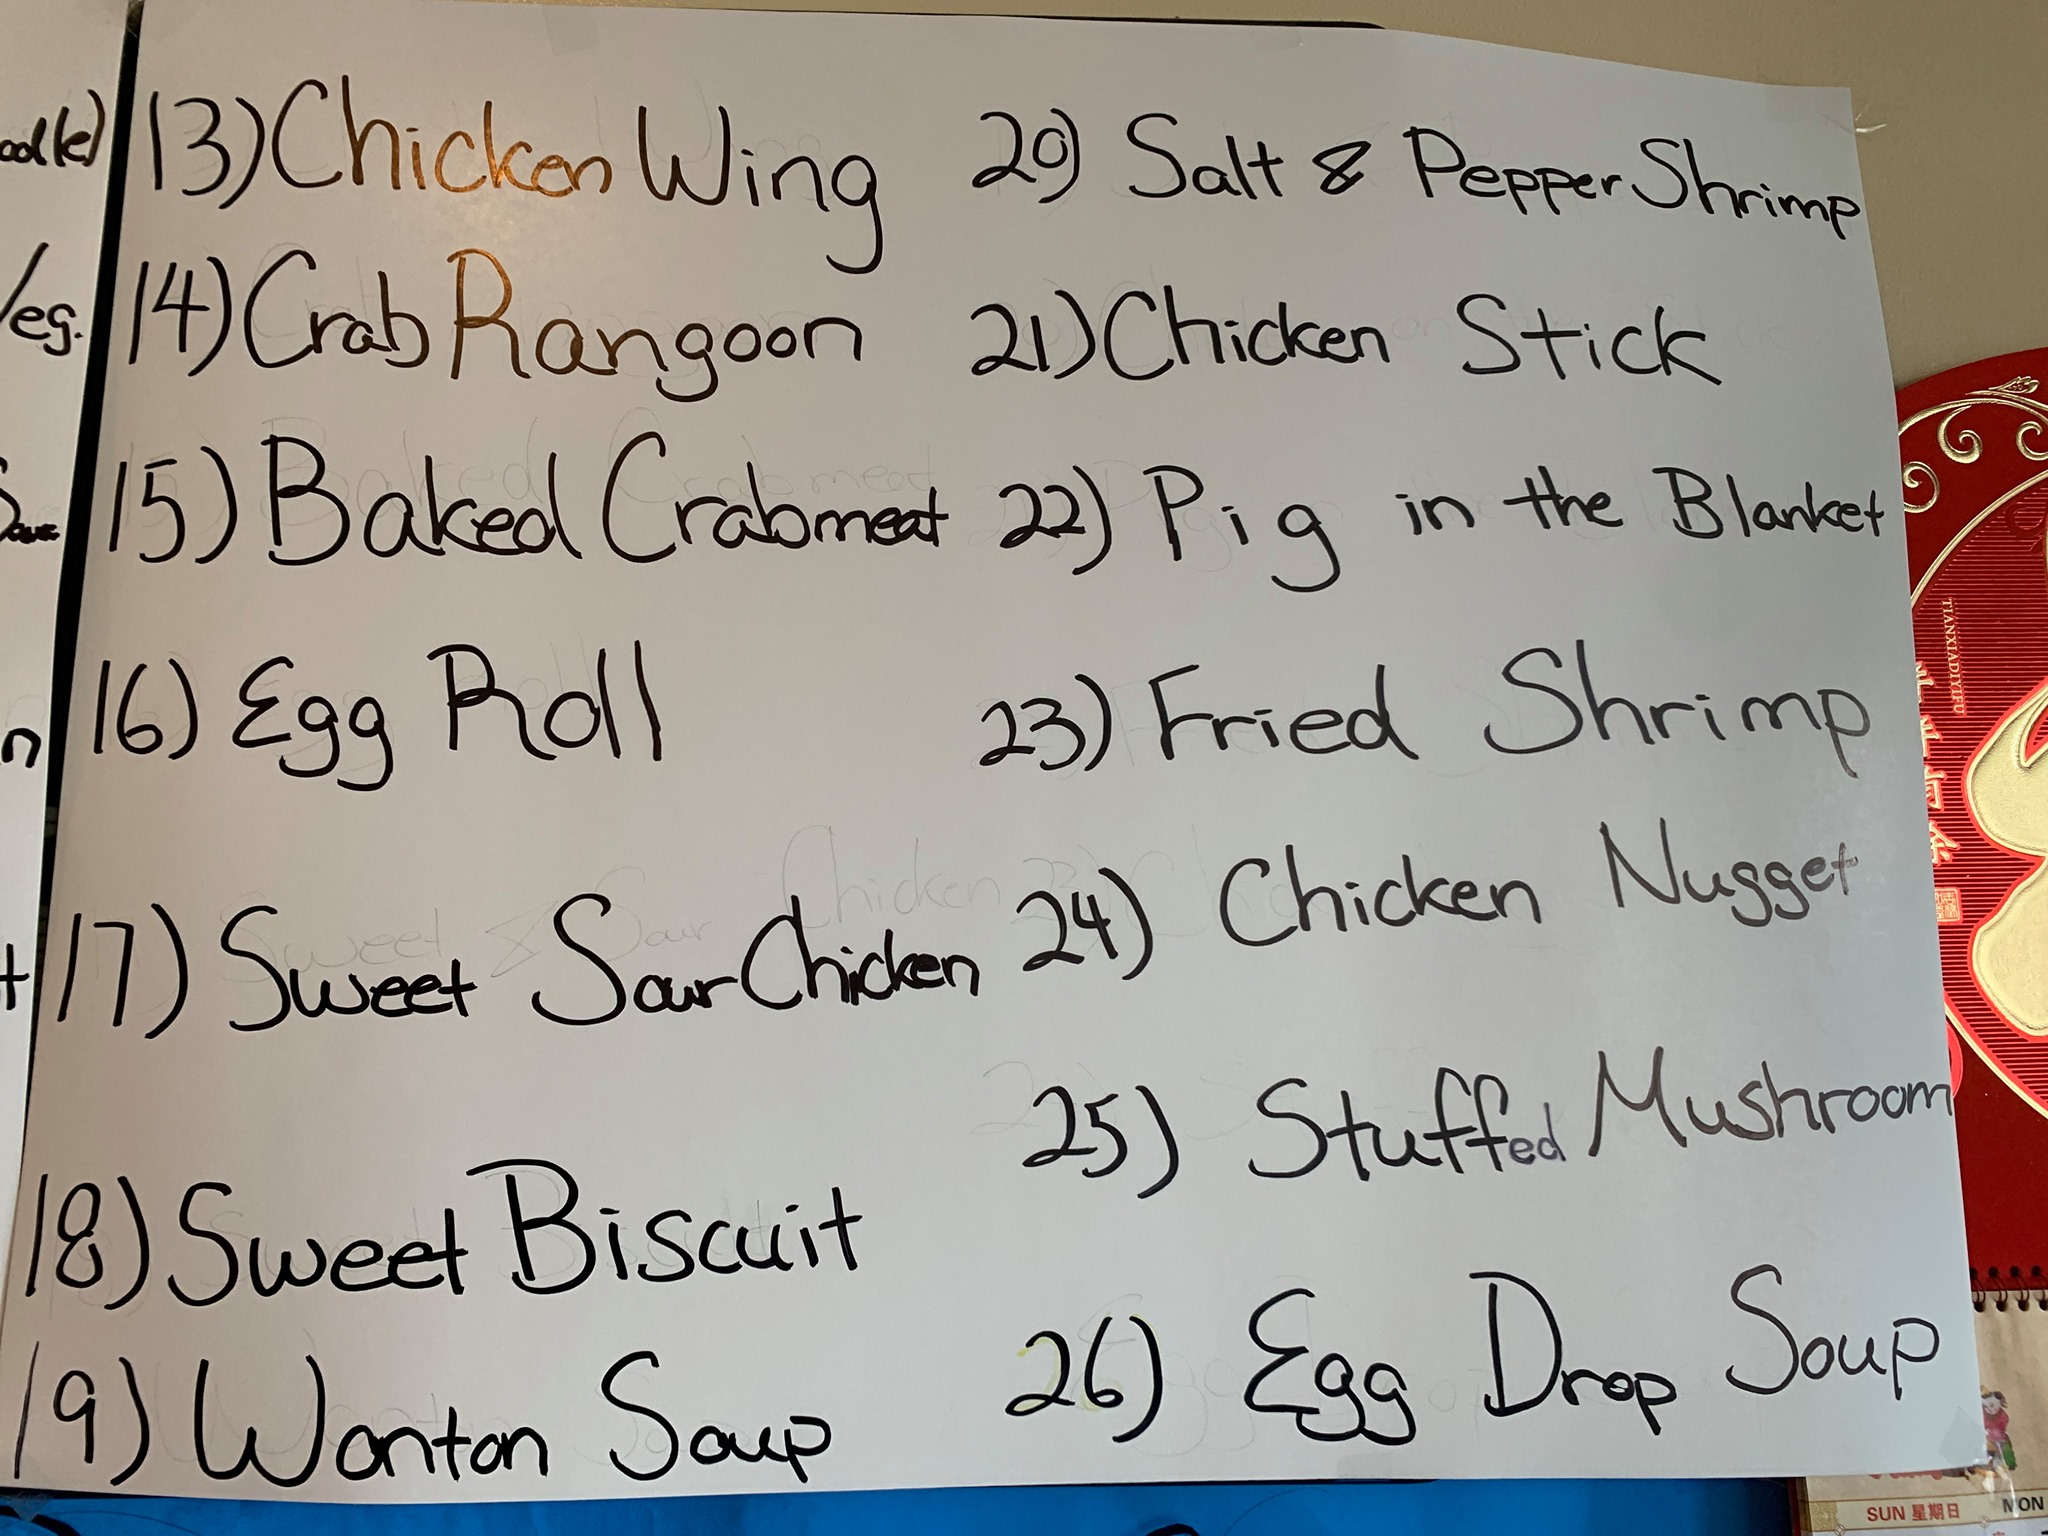 13) Chicken Wing
14) Crab Rangoon
15) Baked Crabmeat
16) Egg Roll
17) Sweet Sour Chicken
18) Sweet Biscuit
19) Wonton Soup
20) Salt & Pepper Shrimp
21) Chicken Stick
22) Pig in the Blanket
23) Fried Shrimp
24) Chicken Nugget
25) Stuffed Mushroom
26) Egg Drop Soup
eg.
n
t
TIANXIADIYIFU
SUN 星期日
MON